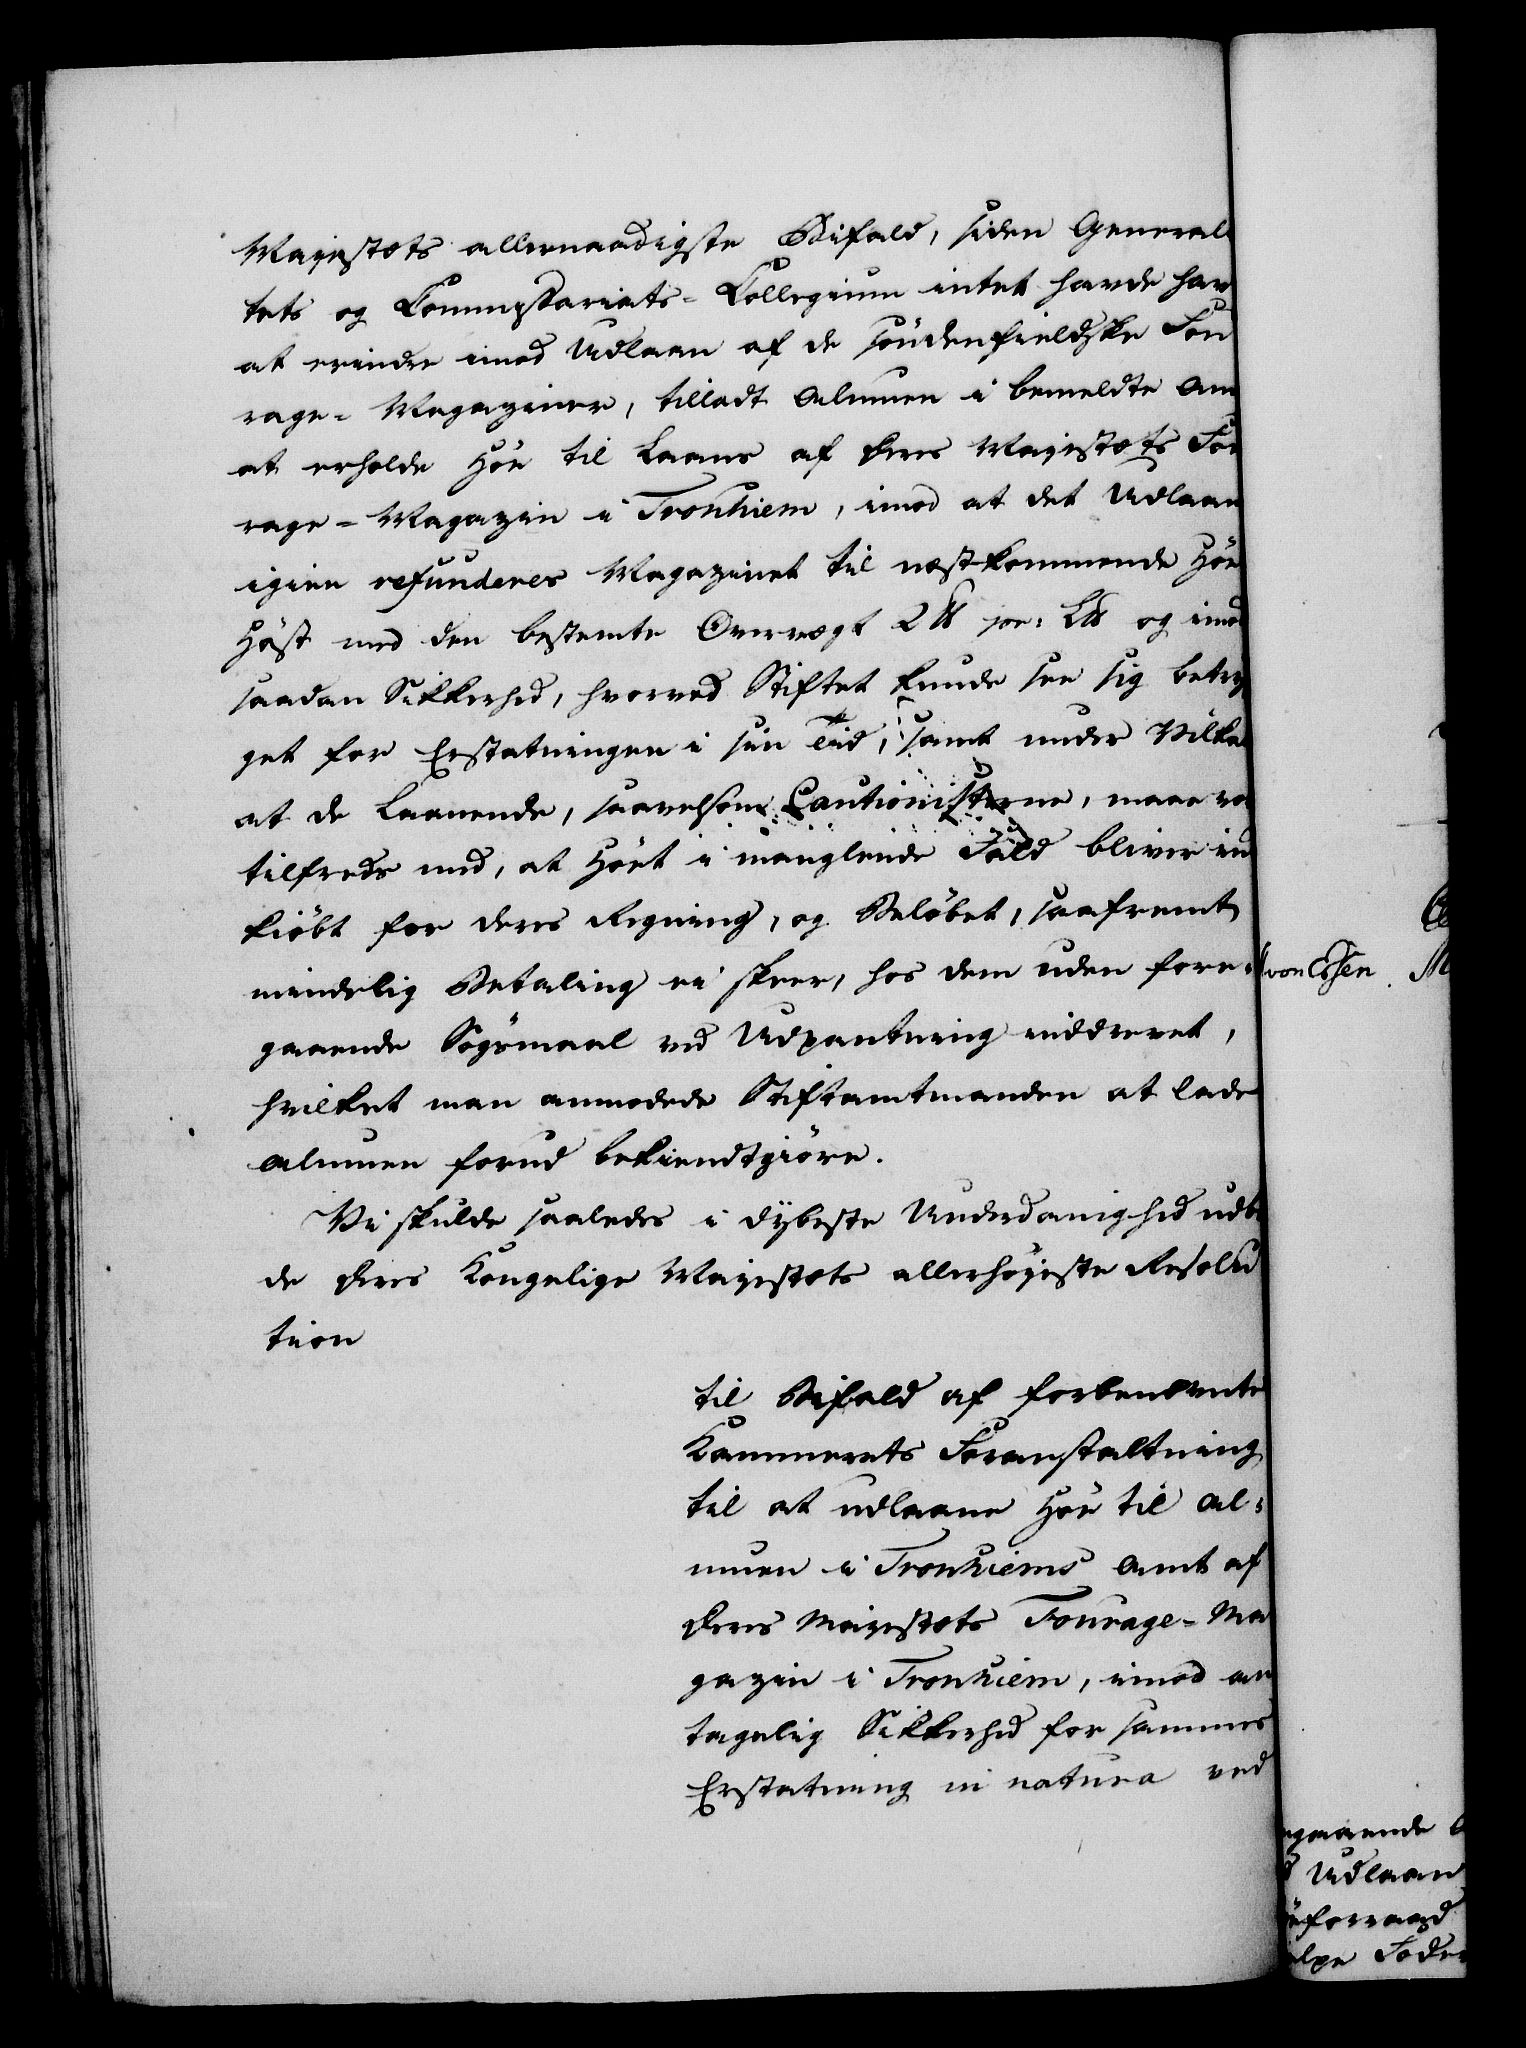 Majestæts allernaadigste Bifald, siden General
tets og Commissariats-Collegium intet havde hav
at erindre imod Udlaan af de söndenfieldske Fou
rage-Magaziner, tilladt Almuen i bemeldte Am
at erholde Höe til Laans af Deres Majestæts Fou
rage-Magazin i Tronhiem, imod at det Udlaan
igien refunderes Magazinet til næstkommende Höe
Höst med den bestemte Overvægt 2 ℔ pr: L℔ og imod
saadan Sikkerhed, hvorved Stiftet kunde see sig betryg
get for Erstatningen i sin Tid, samt under Vilkaar
at de Laanende, saavelsom Cautionisterne, maae væ
tilfreds med, at Höet i manglende Fald bliver ind
kiöbt for deres Regning, og Belöbet, saafremt
mindelig Betaling ei skeer, hos dem uden fore-
gaaende Sögsmaal ved Udpantning inddrevet,
hvilket man anmodede Stiftamtmanden at lade
Almuen forud bekiendtgiöre.
Vi skulde saaledes i dybeste Underdanighed udbe
de Deres Kongelige Majestæts allerhöyeste Resolu
tion
til Bifald af forbenævnte
Kammerets Foranstaltning
til at udlaane Höe til Al-
muen i Tronhiems Amt af
Deres Majestæts Fourage-Ma
gazin i Tronhiem, imod an
tagelig Sikkerhed for sammes
Erstatning in natura ved
von Essen
M
gaaende
Udlaan
forraad
Foder